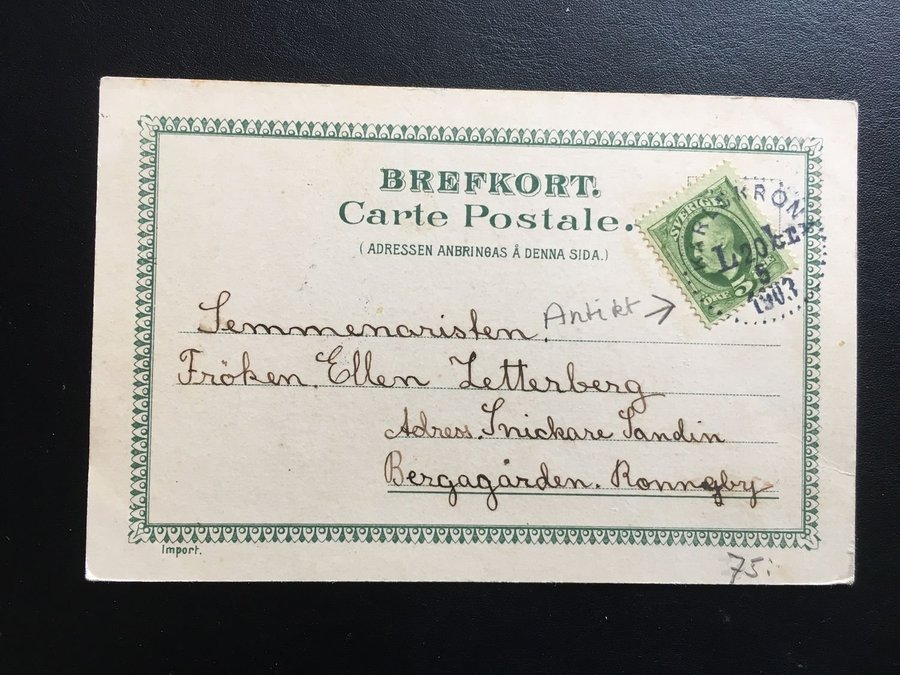 BREFKORT.
Carte Postale.
(ADRESSEN ANBRINGAS Å DENNA SIDA.)
SVERIGE
5 ÖRE
KARLSKRONA
20
5
1903
Antikt →
Semmenaristen.
Fröken. Ellen Zetterberg
Adress. Snickare Sandin
Bergagården. Ronneby
Import.
75: